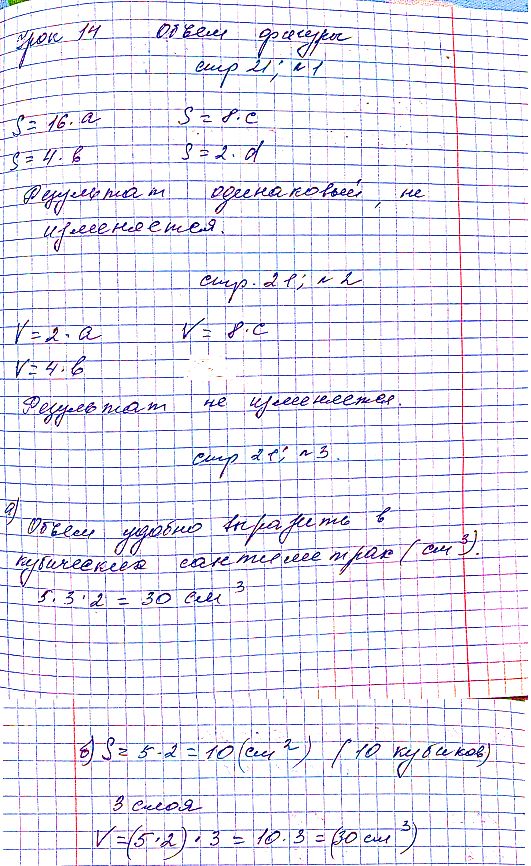 Урок 14 Объем фигуры
стр 21; №1
S = 16·a S = 8·c
S = 4·b S = 2·d
Результат одинаковый, не
изменяется.
стр. 21; №2
V = 2·a V = 8·c
V = 4·b
Результат не изменяется.
стр 21; №3.
а)
Объем удобно выразить в
кубических сантиметрах (см³).
5·3·2 = 30 см³
б) S = 5·2 = 10 (см²) (10 кубиков)
3 слоя
V = (5·2)·3 = 10·3 = (30 см³)